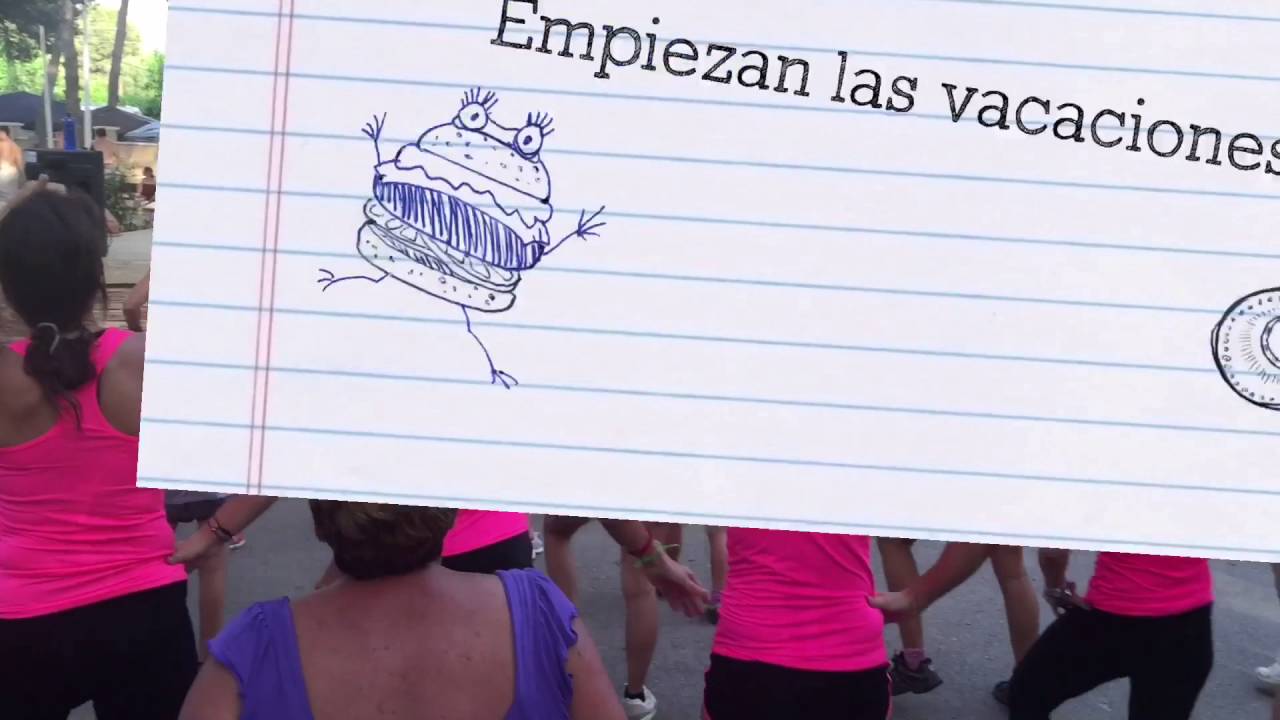 Empiezan las vacaciones